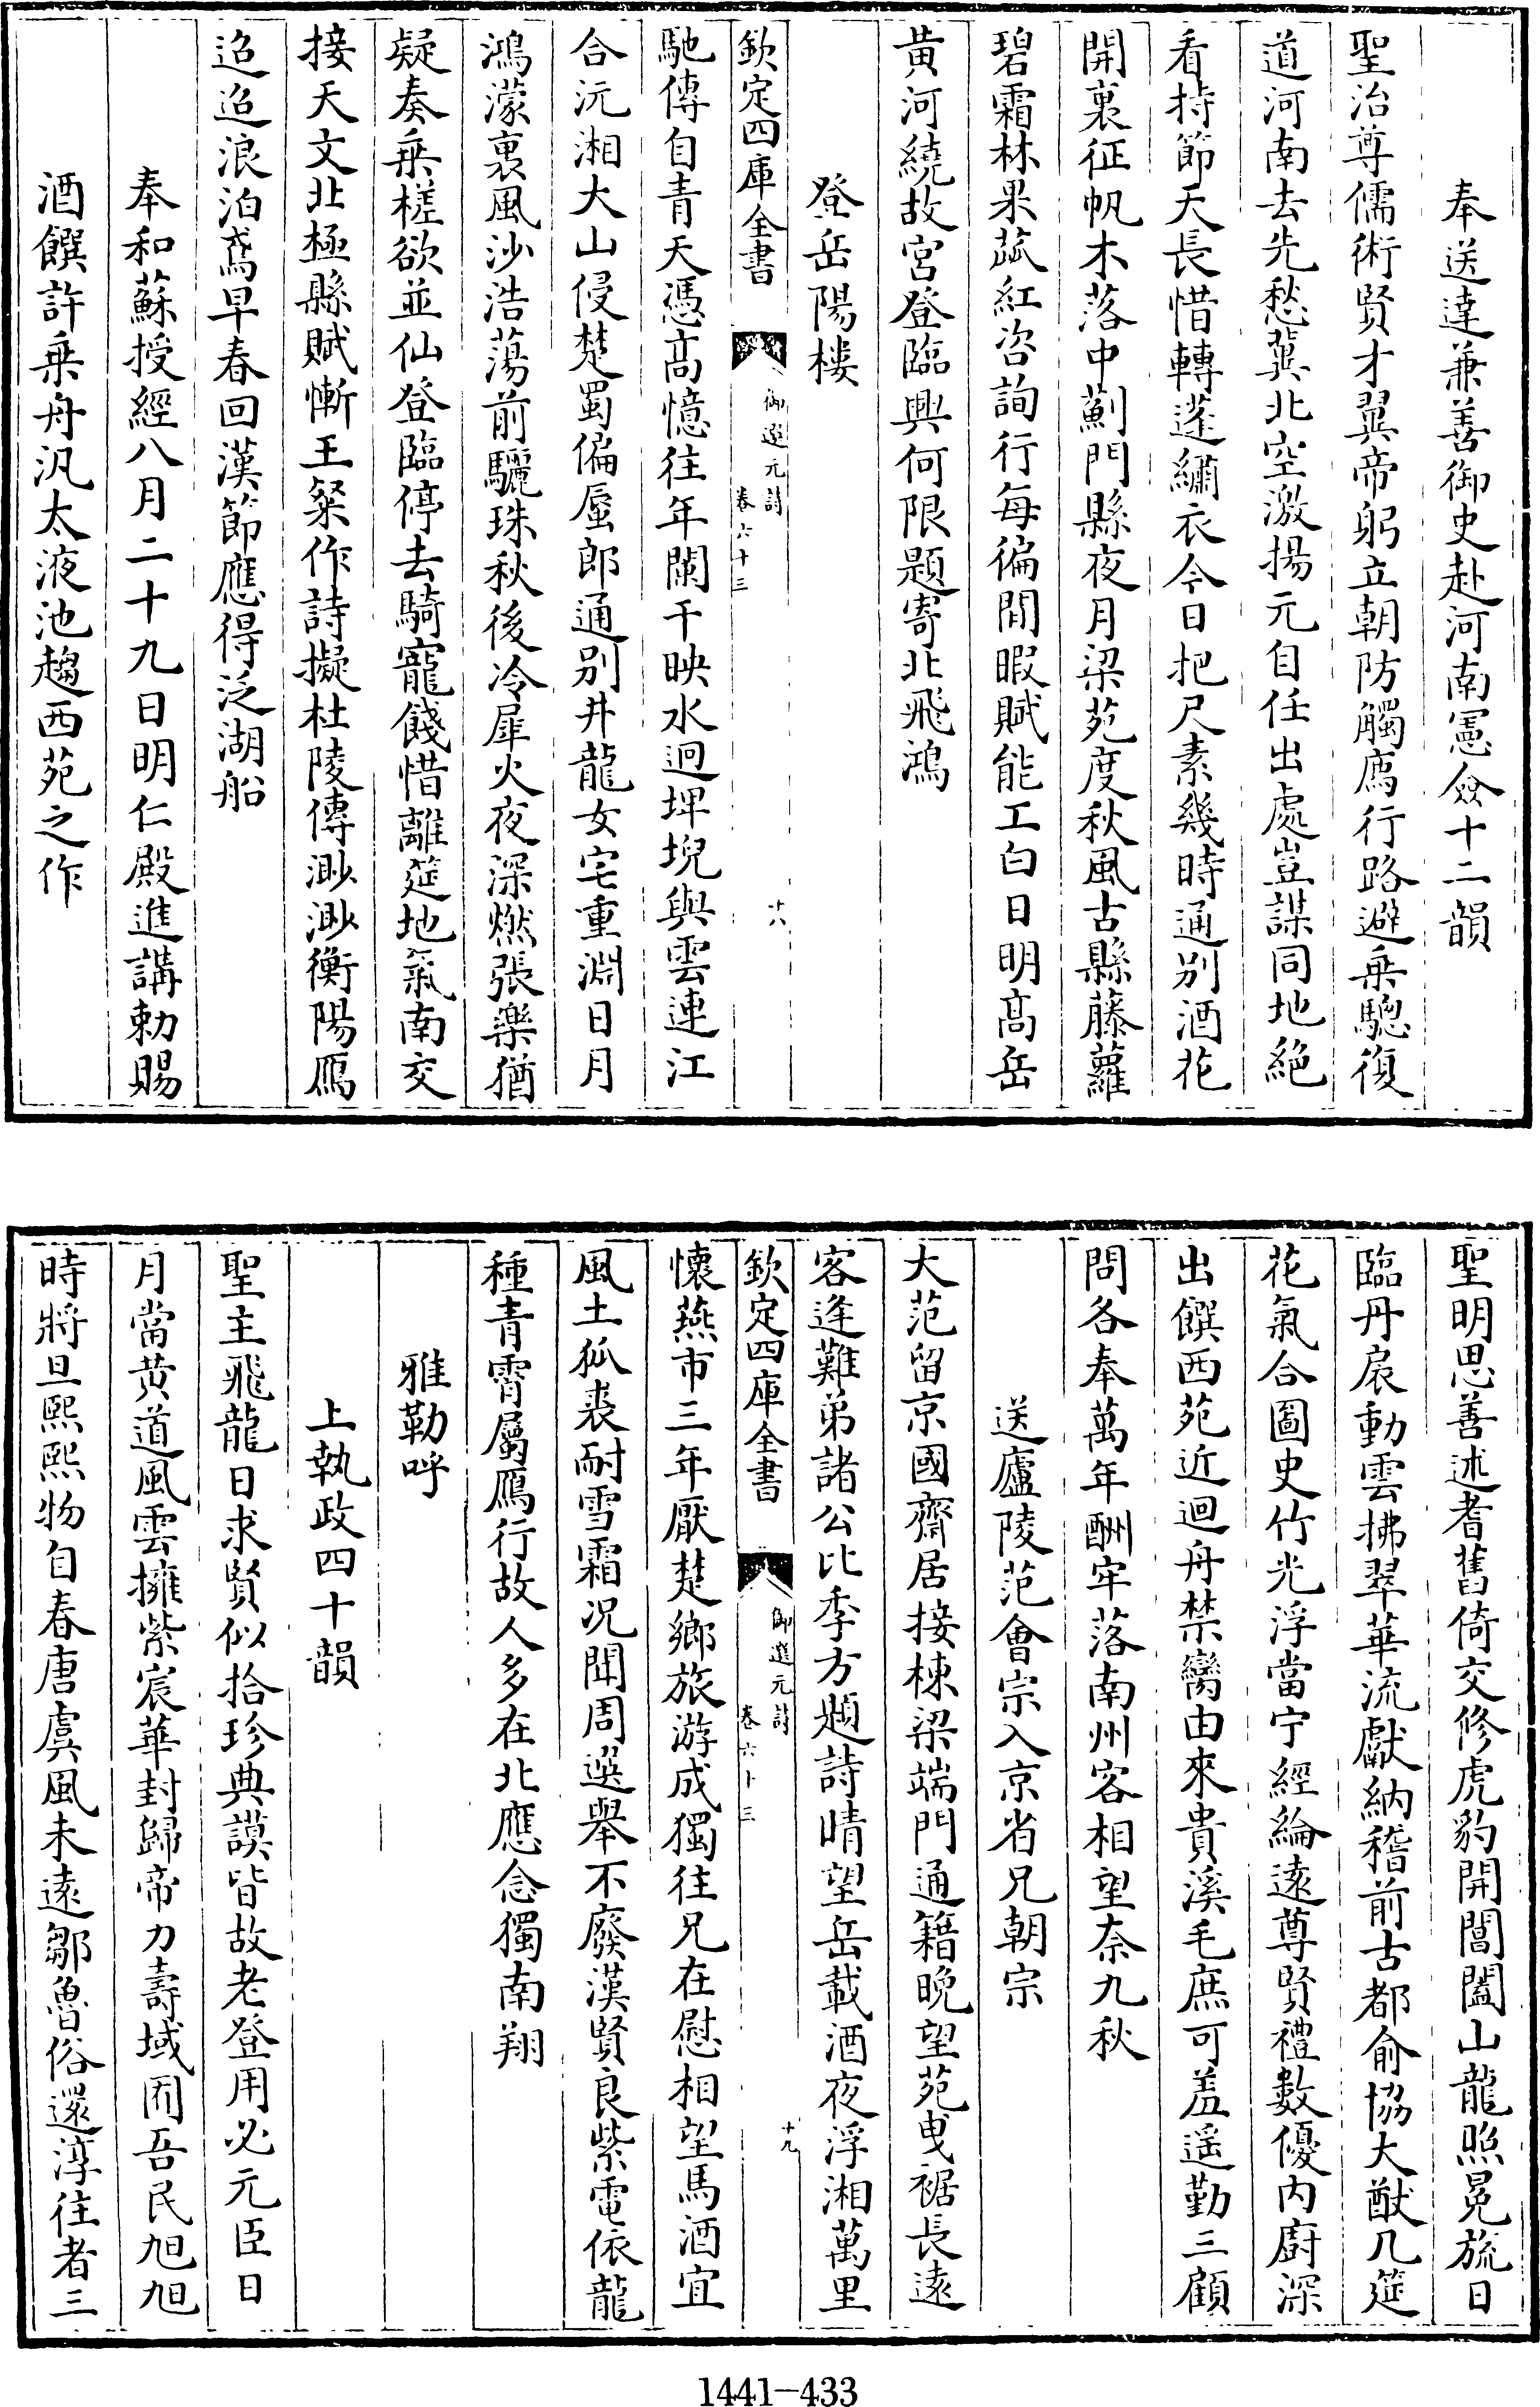 奉送達兼善御史赴河南憲僉十二韻
聖治尊儒術賢才翼帝躬立朝防觸廌行路避乗驄復
道河南去先愁冀北空激揚元自任出處豈謀同地絶
看持節天長惜轉蓬繡衣今日把尺素幾時通别酒花
開裏征帆木落中薊門縣夜月梁苑度秋風古縣藤蘿
碧霜林果蓏紅咨詢行每徧閒暇賦能工白日明髙岳
黄河繞故宫登臨興何限題寄北飛鴻
登岳陽樓
欽定四庫全書
御選元詩
卷六十三
十八
馳傳自青天憑髙憶往年闌干映水迥埤堄與雲連江
合沅湘大山侵楚蜀偏蜃郎通别井龍女宅重淵日月
鴻濛裏風沙浩蕩前驪珠秋後冷犀火夜深燃張樂猶
疑奏乗槎欲並仙登臨停去騎寵餞惜離筵地氣南交
接天文北極縣賦慚王粲作詩擬杜陵傳渺渺衡陽鴈
迢迢浪泊鳶早春回漢節應得泛湖船
奉和蘇授經八月二十九日明仁殿進講勅賜
酒饌許乗舟汎太液池趨西苑之作
聖明思善述耆舊倚交修虎豹開閶闔山龍照冕旒日
臨丹扆動雲拂翠華流獻納稽前古都俞協大猷几筵
花氣合圖史竹光浮當宁經綸遠尊賢禮數優内廚深
出饌西苑近迴舟禁臠由來貴溪毛庶可羞遥勤三顧
問各奉萬年酬牢落南州客相望奈九秋
送廬陵范會宗入京省兄朝宗
大范留京國齋居接棟梁端門通籍晩望苑曵裾長遠
客逢難弟諸公比季方題詩晴望岳載酒夜浮湘萬里
欽定四庫全書
御選元詩
卷六十三
十九
懷燕市三年厭楚鄉旅游成獨往兄在慰相望馬酒宜
風土狐裘耐雪霜况聞周選舉不廢漢賢良紫電依龍
種青霄屬鴈行故人多在北應念獨南翔
雅勒呼
上執政四十韻
聖主飛龍日求賢似拾珍典謨皆故老登用必元臣日
月當黄道風雲擁紫宸華封歸帝力壽域囿吾民旭旭
時將旦熙熙物自春唐虞風未遠鄒魯俗還淳往者三
1441-433